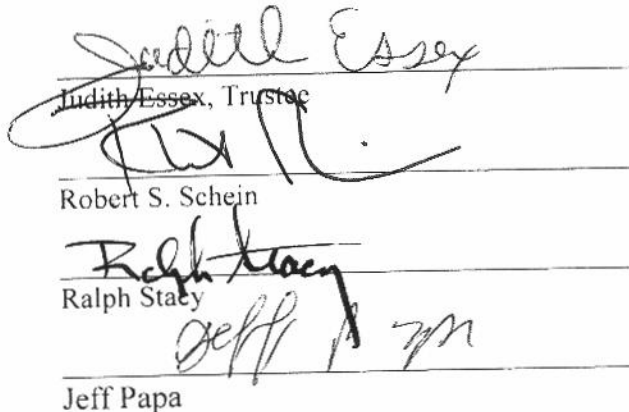 Judith Essex
Judith Essex, Trustee
Robert S. Schein
Ralph Stacy
Ralph Stacy
Jeff
Jeff Papa